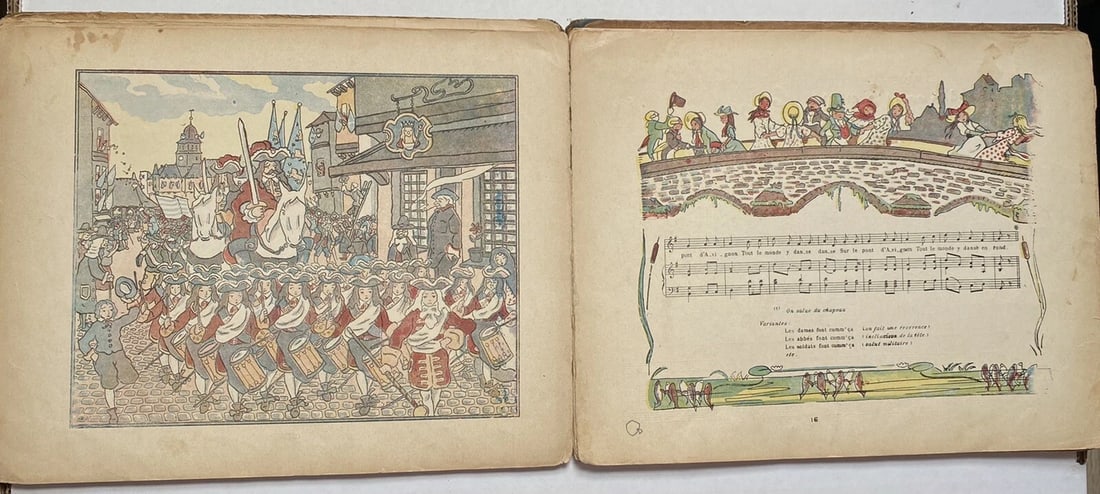 pont d'A_vi_gnon Tout le monde y dan_se dan_se Sur le pont d'A_vi_gnon Tout le monde y danse en rond
(1) On salue du chapeau
Variantes:
Les dames font comm' ça (on fait une révérence)
Les abbés font comm' ça (inclinaison de la tête)
Les soldats font comm' ça (salut militaire)
etc.
16